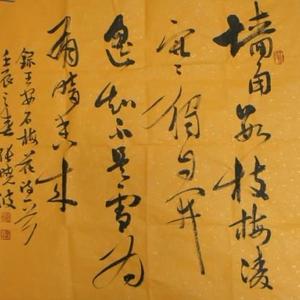 墙角数枝梅凌
寒独自开
遥知不是雪为
有暗香来
录王安石梅花诗一首
壬辰之春张晓波